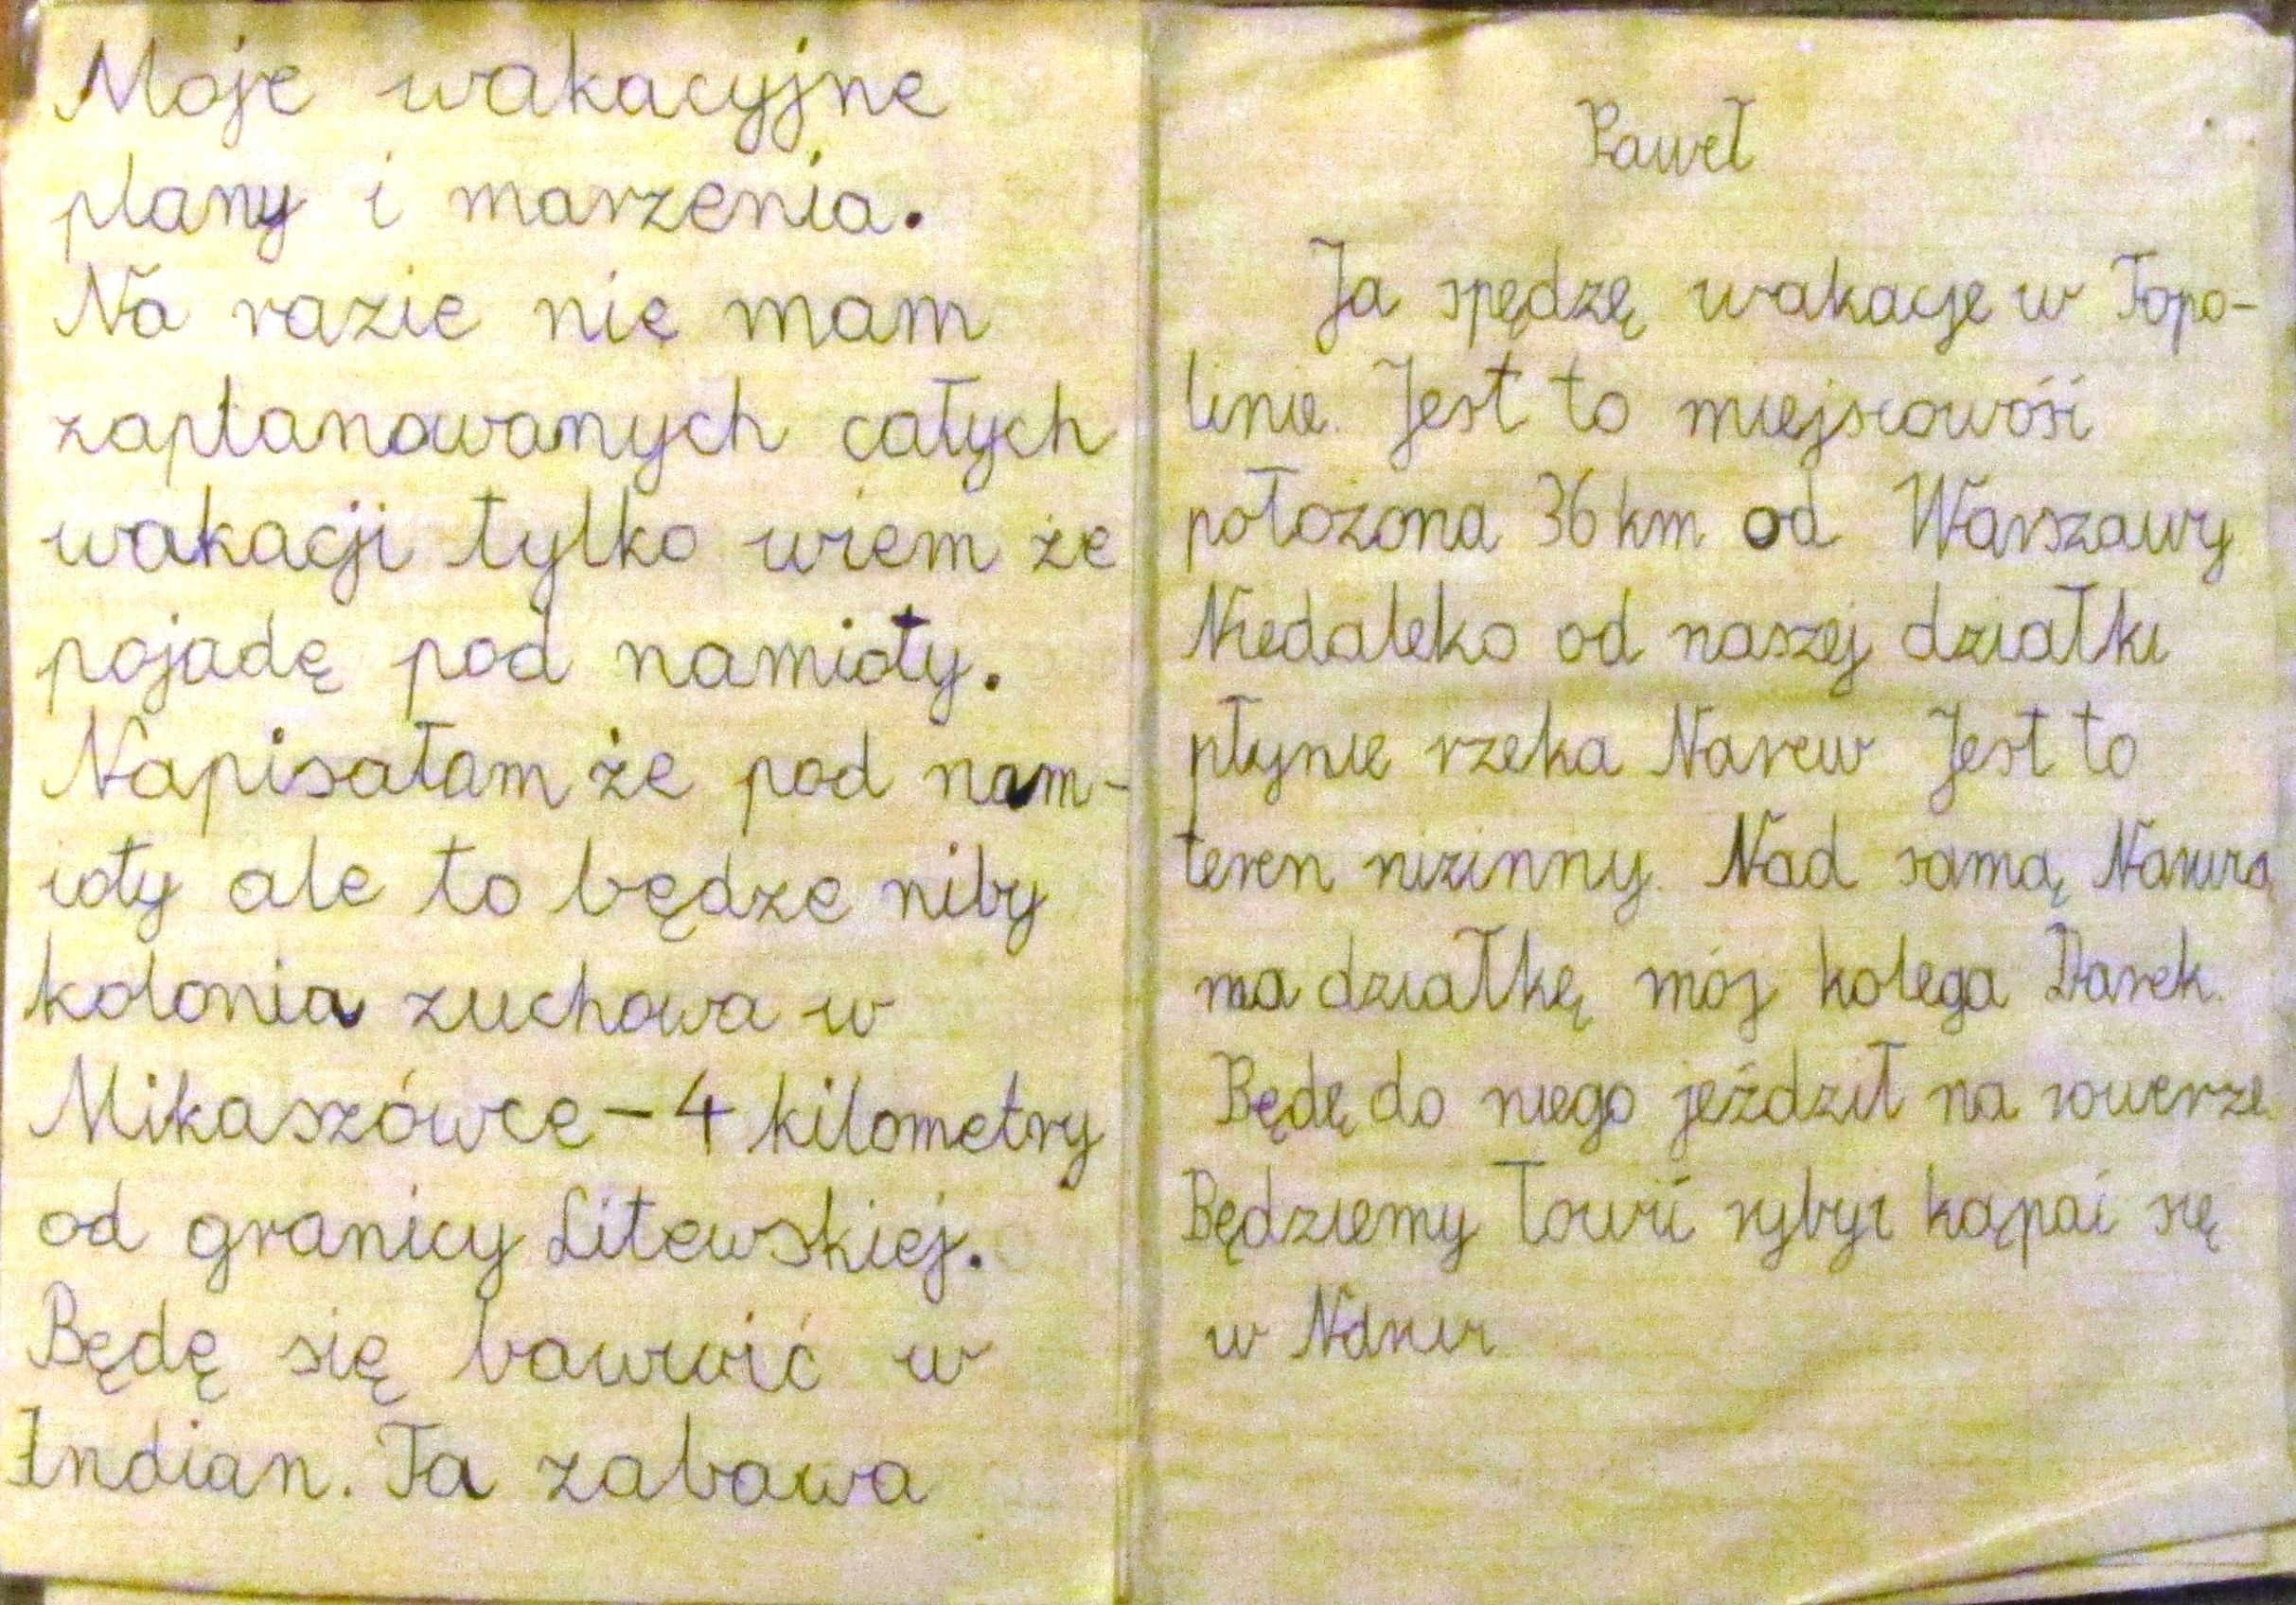 Moje wakacyjne
plany i marzenia.
Na razie nie mam
zaplanowanych całych
wakacji tylko wiem że
pojadę pod namioty.
Napisałam że pod nam-
ioty ale to będze niby
kolonia zuchowa w
Mikaszówce – 4 kilometry
od granicy Litewskiej.
Będę się bawić w
Indian. Ta zabawa
Paweł
Ja spędzę wakacje w Topo-
linie. Jest to miejscowość
położona 36 km od Warszawy
Niedaleko od naszej działki
płynie rzeka Narew Jest to
teren nizinny. Nad samą Narwią
ma działkę mój kolega Darek.
Będę do niego jeździł na rowerze.
Będziemy łowić ryby i kąpać się
w Narwi